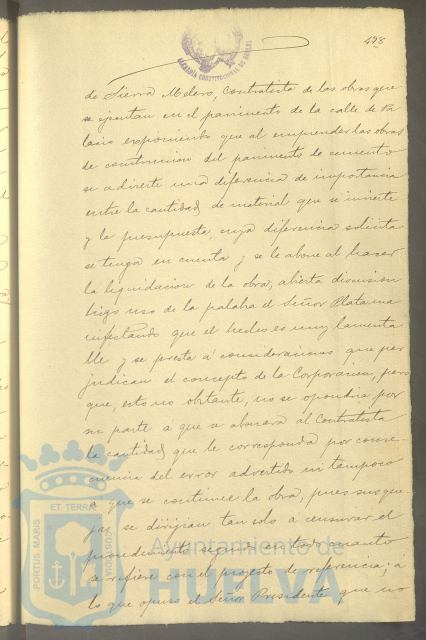 428
ALCALDIA CONSTITUCIONAL DE HUELVA
de Sierra Melero, Contratista de las obras que
se ejecutan en el pavimento de la calle de Pa
lacio exponiendo que al emprender las obras
de continuacion del pavimento de cemento
se advierte una diferencia de importancia
entre la cantidad de material que se invierte
y la presupuesta cuya diferencia solicita
se tenga en cuenta y se le abone al hacer
la liquidacion de la obra, abierta discusion
hizo uso de la palabra el Señor Plata ma
nifestando que el hecho es muy lamenta
ble y se presta á consideraciones que per
judican el concepto de la Corporacion, pero
que, esto no obstante, no se opondria por
su parte á que se abonara al Contratista
la cantidad que le corresponda por conse
cuencia del error advertido ni tampoco
á que se continue la obra, pues sus que
jas se dirijian tan solo á censurar el
procedimiento seguido en todo cuanto
se refiere con el proyecto de referencia; á
lo que opuso el Señor Presidente que no
PORTUS MARIS ET TERRÆ CUSTODIA
Ayuntamiento de
HUELVA